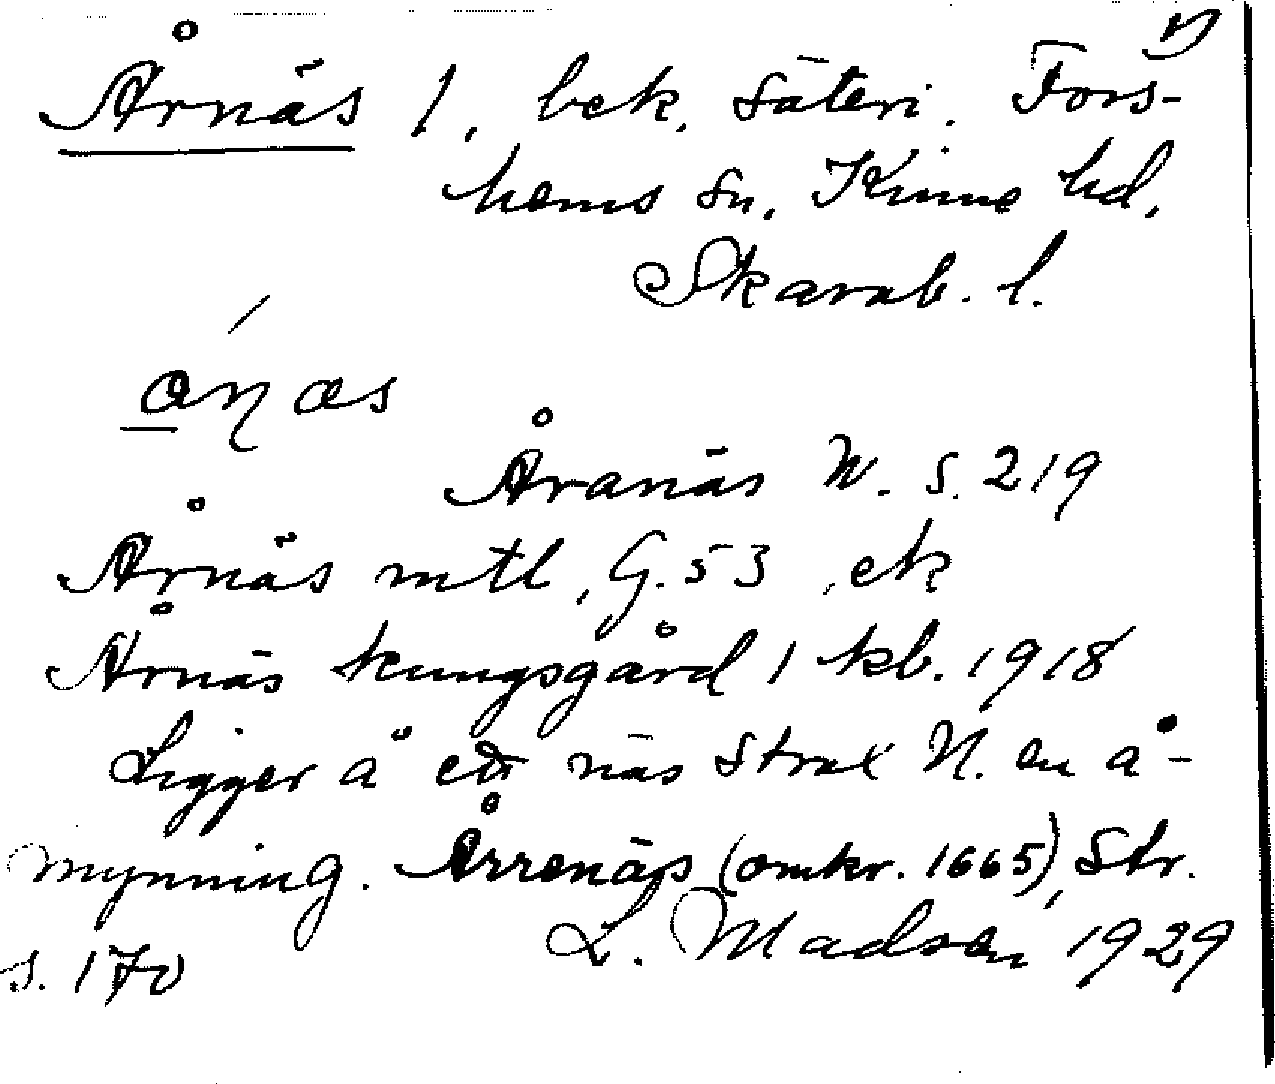 Årnäs 1, bek. säteri. Fors-
hems sn, Kinne hd,
Skarab. l.
Åranäs W. S. 219
Årnäs mtl, G. 53, ek
Årnäs kungsgård 1 kb. 1918
Ligger å ett näs strax N. en å-
mynning. Årrenäs (omkr. 1665), Str.
s. 170 L. Madsen 1929